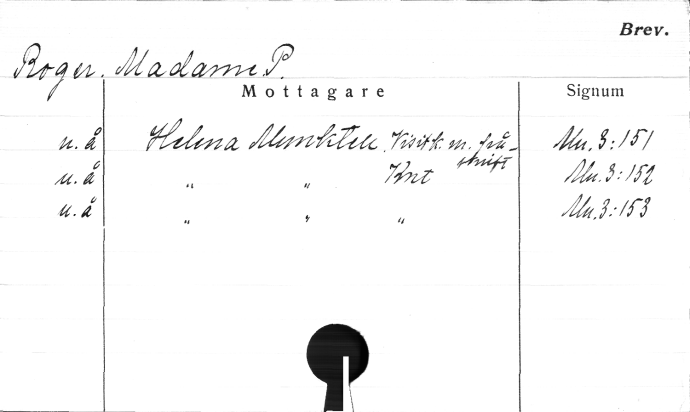 Brev.
Roger, Madame P.
Mottagare Signum
u. å Helena Munktell Visitk. m. på-skrift Mu. 3:151
u. å " " Kort Mu. 3:152
u. å " " " Mu. 3:153